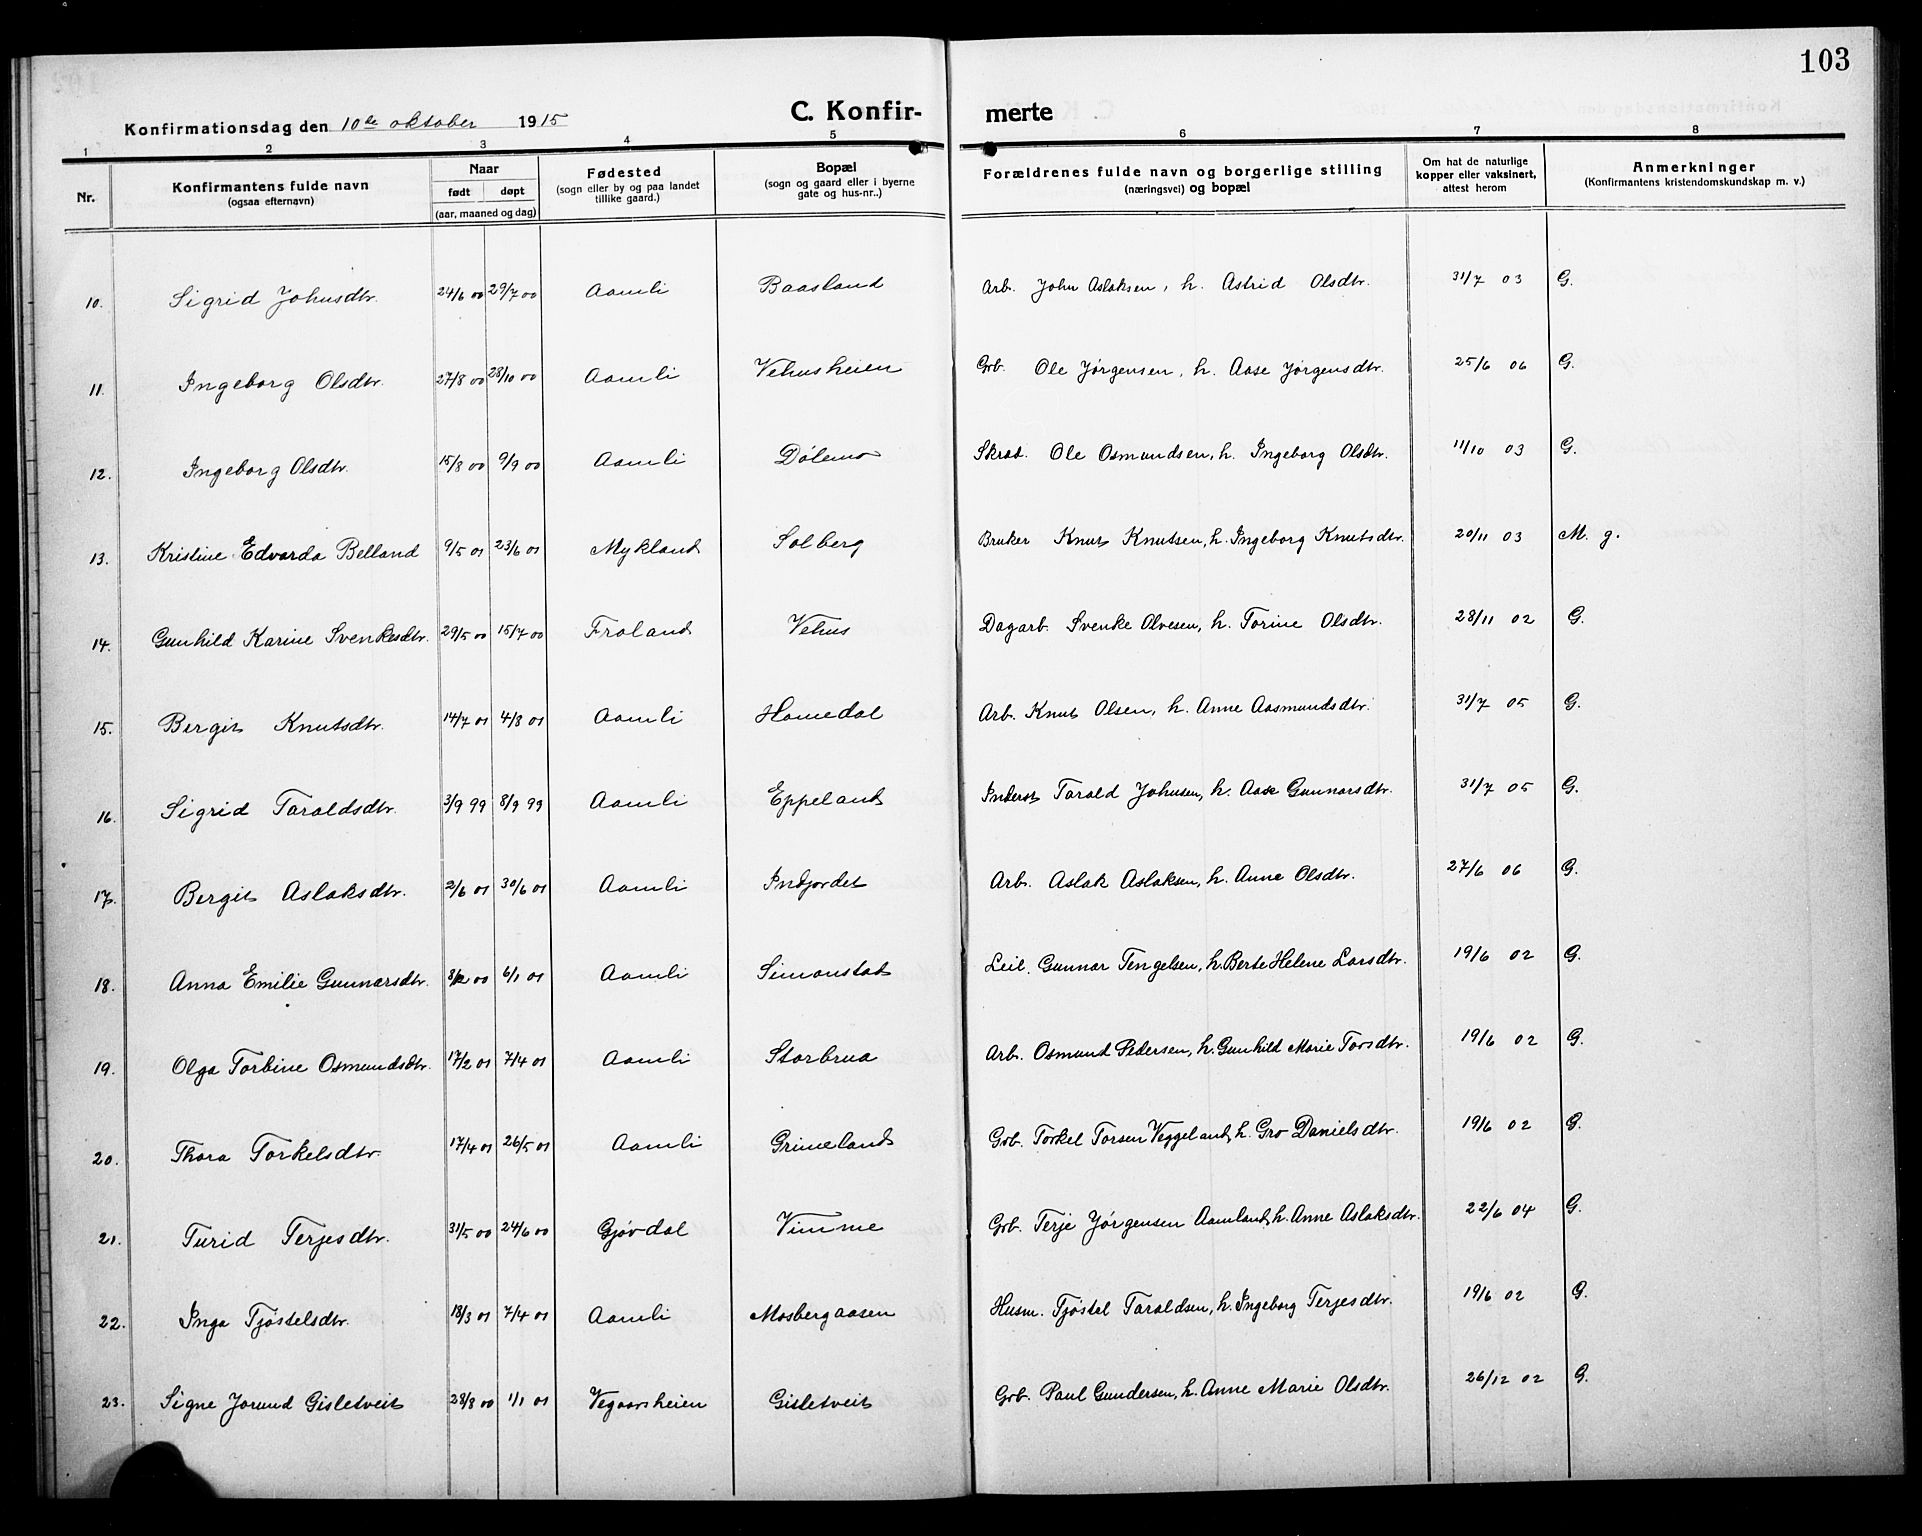 103
Konfirmationsdag den 10de oktober 1915 C. Konfir- merte
1 2 3 4 5 6 7 8
Nr. Konfirmantens fulde navn (ogsaa efternavn) Naar født døpt (aar, maaned og dag) Fødested (sogn eller by og paa landet tillike gaard.) Bopæl (sogn og gaard eller i byerne gate og hus-nr..) Forældrenes fulde navn og borgerlige stilling (næringsvei) og bopæl Om hat de naturlige kopper eller vaksinert, attest herom Anmerkninger (Konfirmantens kristendomskundskap m. v.)
10. Sigrid Johnsdtr. 24/6 00 29/7 00 Aamli Baasland Arb. John Aslaksen, h. Astrid Olsdtr. 31/7 03 G.
11. Ingeborg Olsdtr. 27/8 00 28/10 00 Aamli Vehusheien Grb. Ole Jørgensen, h. Aase Jørgensdtr. 25/6 06 G.
12. Ingeborg Olsdtr. 15/8 00 9/9 00 Aamli Dølemo Skræd. Ole Osmundsen, h. Ingeborg Olsdtr. 11/10 03 G.
13. Kristine Edvarda Belland 9/5 01 23/6 01 Mykland Solberg Bruker Knut Knutsen, h. Ingeborg Knutsdtr. 20/11 03 M. g.
14. Gunhild Karine Svenkesdtr. 29/5 00 15/7 00 Froland Vehus Dagarb. Svenke Olvesen, h. Torine Olsdtr. 28/11 02 G.
15. Bergit Knutsdtr. 14/7 01 4/8 01 Aamli Homedal Arb. Knut Olsen, h. Anne Aasmundsdtr. 31/7 05 G.
16. Sigrid Taraldsdtr. 3/9 99 8/9 99 Aamli Eppeland Inderst Tarald Johnsen, h. Aase Gunnarsdtr. 31/7 05 G.
17. Bergit Aslaksdtr. 2/6 01 30/6 01 Aamli Indjordet Arb. Aslak Aslaksen, h. Anne Olsdtr. 27/6 06 G.
18. Anna Emilie Gunnarsdtr. 00 6/1 01 Aamli Simonstad Leil. Gunnar Tengelsen, h. Berte Helene Larsdtr. 19/6 02 G.
19. Olga Torbine Osmundsdtr. 17/2 01 7/4 01 Aamli Storbrua Arb. Osmund Pedersen, h. Gunhild Marie Torsdtr. 19/6 02 G.
20. Thora Torkelsdtr. 17/4 01 26/5 01 Aamli Grimeland Grb. Torkel Torsen Veggeland, h. Gro Danielsdtr. 19/6 02 G.
21. Turid Terjesdtr. 31/5 00 24/6 00 Gjøvdal Vimme Grb. Terje Jørgensen Aamland, h. Anne Aslaksdtr. 22/6 04 G.
22. Inga Tjøstelsdtr. 18/3 01 7/4 01 Aamli Mosbergaasen Husm. Tjøstel Taraldsen, h. Ingeborg Terjesdtr. 19/6 02 G.
23. Signe Jorund Gisletveit 28/8 00 1/1 01 Vegaarsheien Gisletveit Grb. Paul Gundersen, h. Anne Marie Olsdtr. 26/12 02 G.